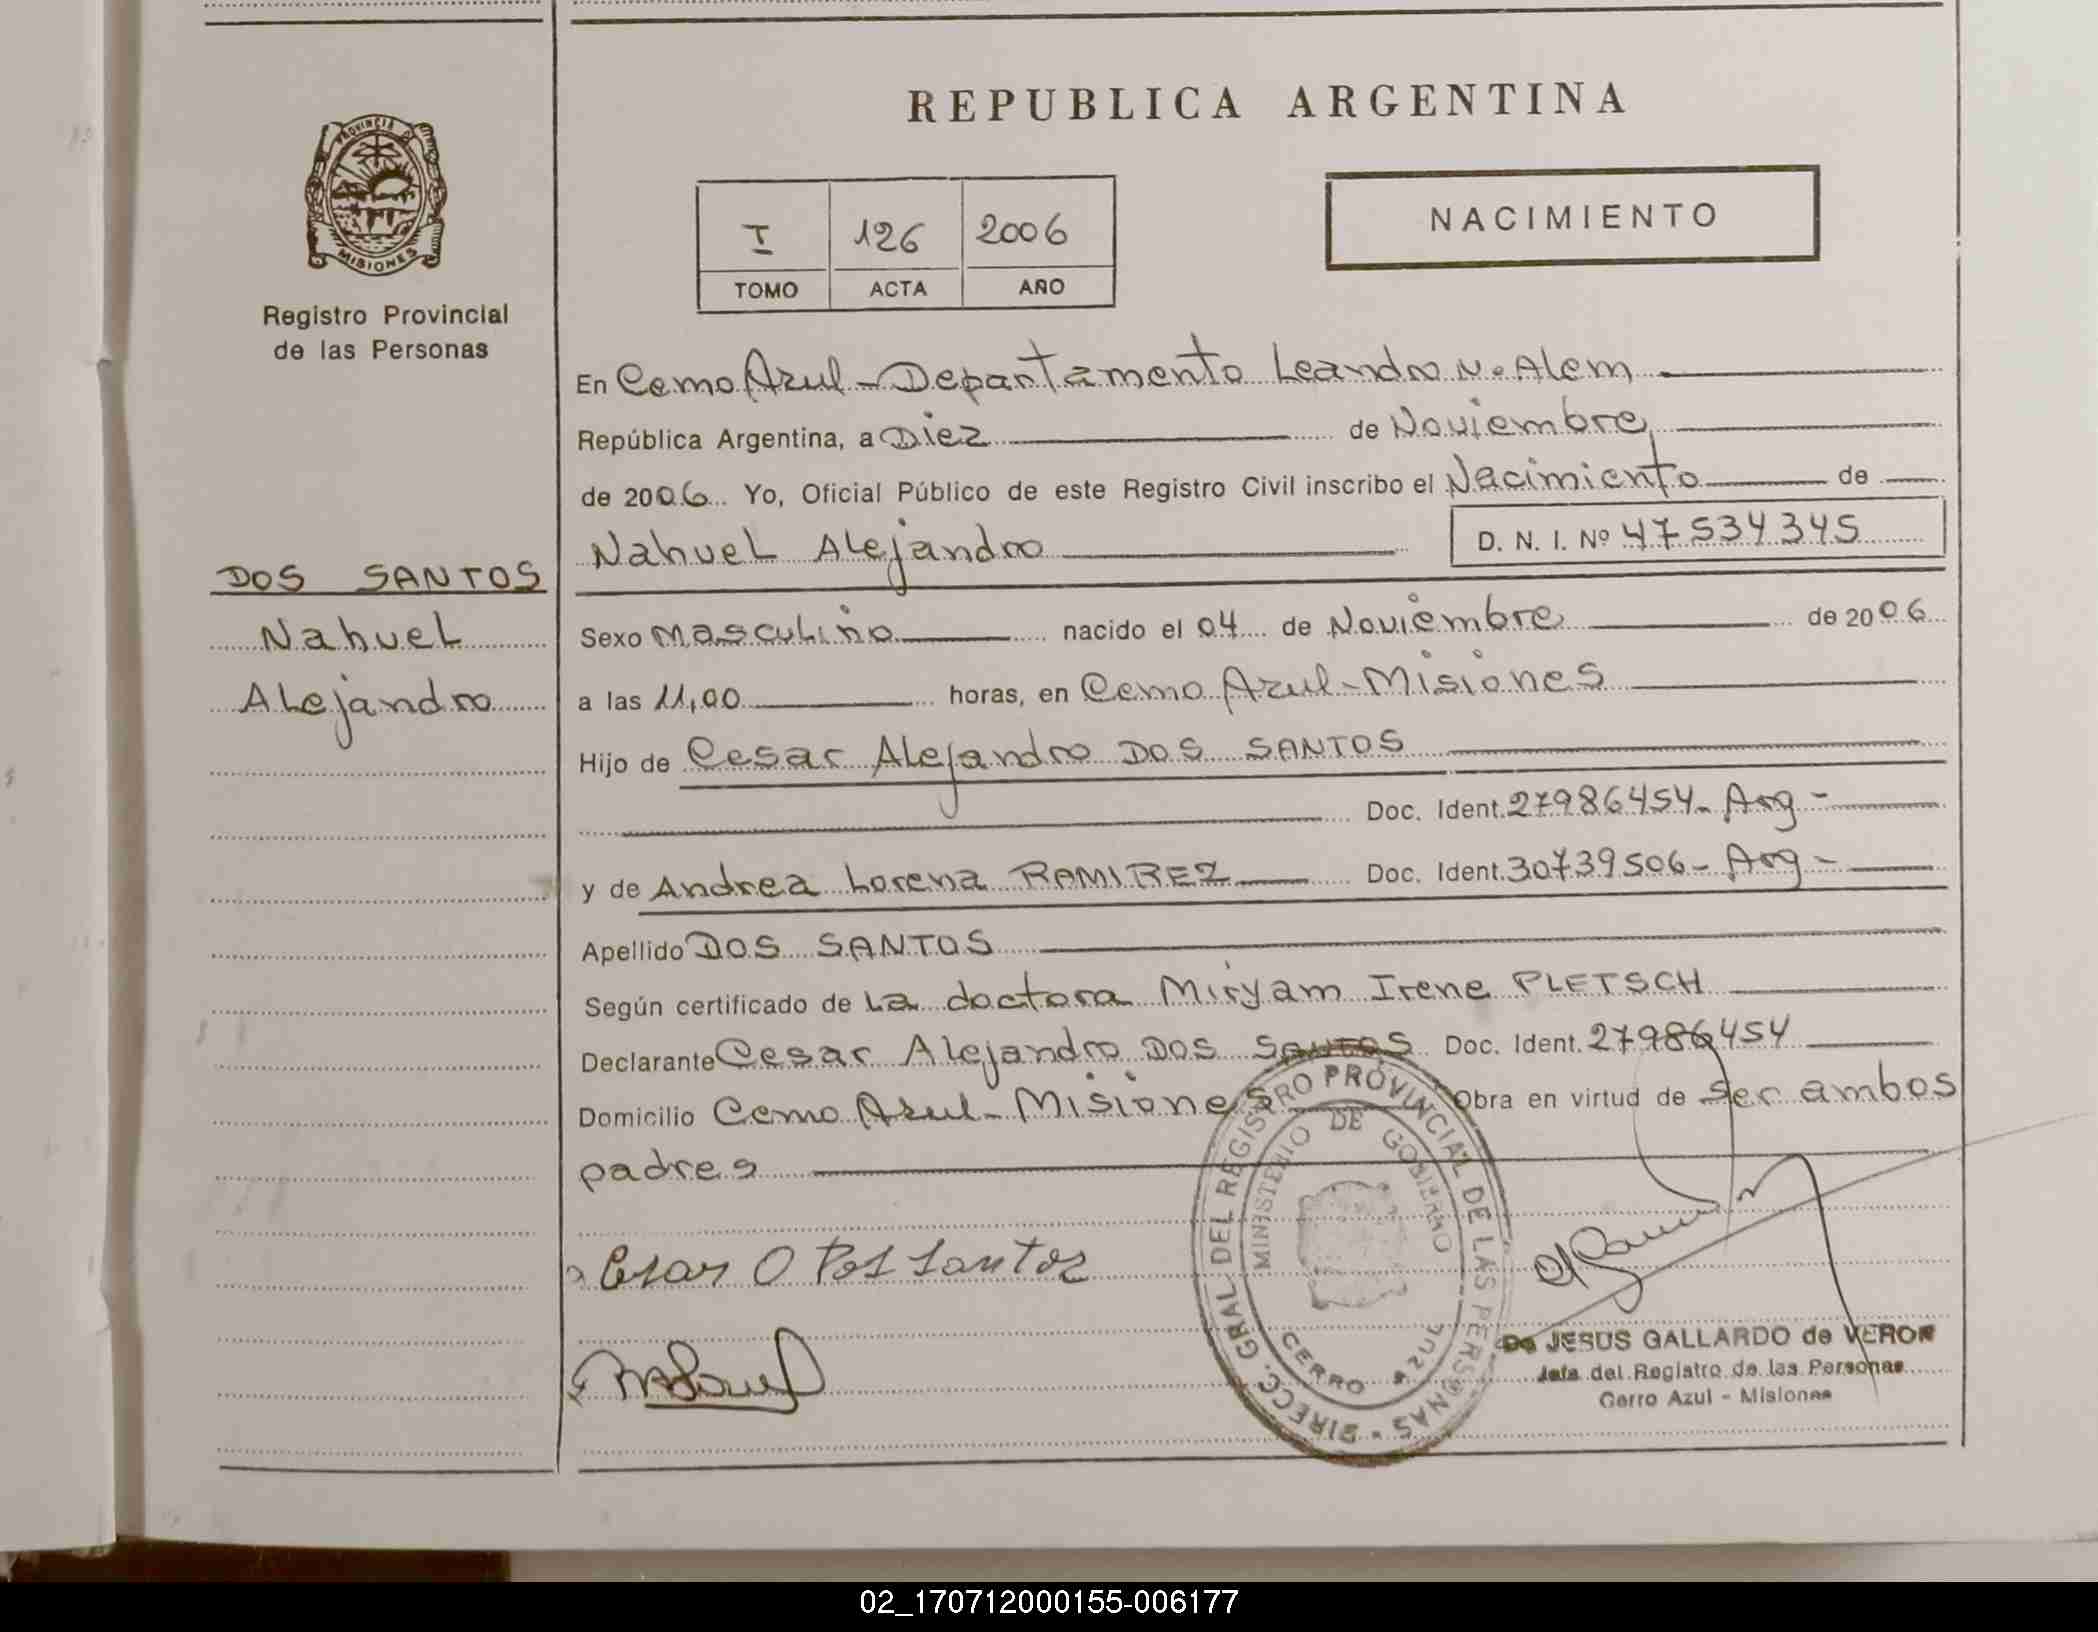 REPUBLICA ARGENTINA
PROVINCIA D
MISIONES
Registro Provincial
de las Personas
I 126 2006
TOMO ACTA AÑO
NACIMIENTO
En Cerro Azul - Departamento Leandro N. Alem
República Argentina, a Diez de Noviembre
de 2006 Yo, Oficial Público de este Registro Civil inscribo el Nacimiento de
Nahuel Alejandro D. N. I. Nº 47534345
DOS SANTOS
Nahuel
Alejandro
Sexo masculino nacido el 04 de Noviembre de 2006
a las 11,00 horas, en Cerro Azul - Misiones
Hijo de Cesar Alejandro DOS SANTOS
Doc. Ident. 27986454 - Arg -
y de Andrea Lorena RAMIREZ Doc. Ident. 30739506 - Arg -
Apellido DOS SANTOS
Según certificado de La doctora Miryam Irene PLETSCH
Declarante Cesar Alejandro DOS SANTOS Doc. Ident. 27986454
Domicilio Cerro Azul - Misiones Obra en virtud de ser ambos
padres
DIRECC. GRAL DEL REGISTRO PROVINCIAL DE LAS PERSONAS
MINISTERIO DE GOBIERNO
CERRO AZUL
Cesar Dos Santos
JESUS GALLARDO de VERON
Jefa del Registro de las Personas
Cerro Azul - Misiones
02_170712000155-006177